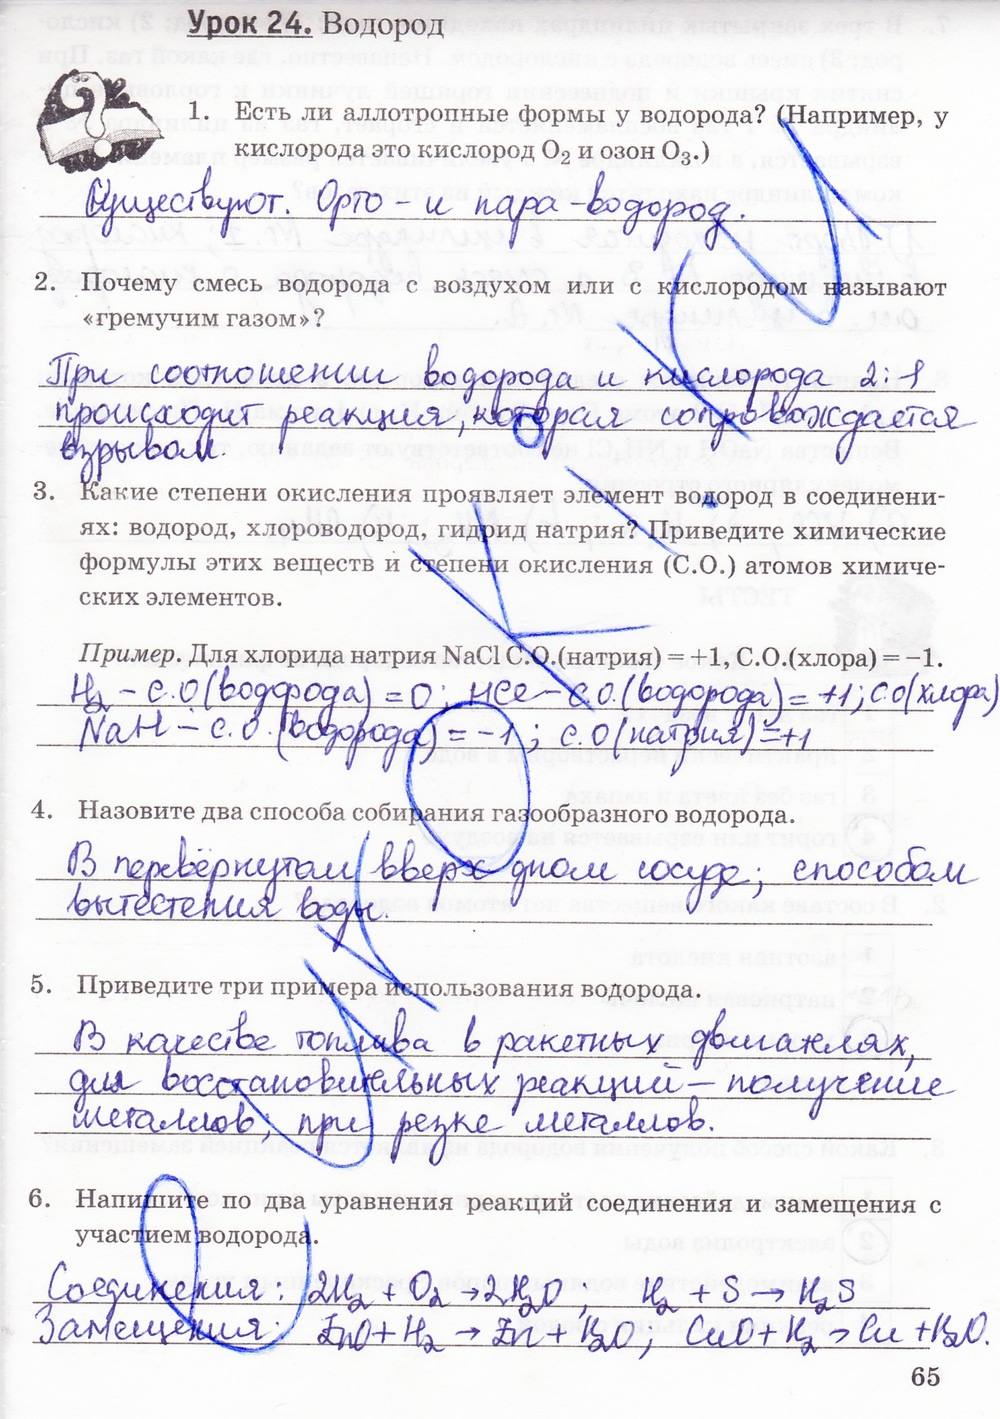 Урок 24. Водород
1. Есть ли аллотропные формы у водорода? (Например, у
кислорода это кислород O₂ и озон O₃.)
Существуют. Орто - и пара-водород.
2. Почему смесь водорода с воздухом или с кислородом называют
«гремучим газом»?
При соотношении водорода и кислорода 2:1
происходит реакция, которая сопровождается
взрывом.
3. Какие степени окисления проявляет элемент водород в соединени-
ях: водород, хлороводород, гидрид натрия? Приведите химические
формулы этих веществ и степени окисления (С.О.) атомов химиче-
ских элементов.
Пример. Для хлорида натрия NaCl С.О.(натрия) = +1, С.О.(хлора) = −1.
H₂ - С.О(водорода) = 0; HCl - С.О.(водорода) = +1; СО(хлора)
NaH - С.О.(водорода) = -1; С.О(натрия) = +1
4. Назовите два способа собирания газообразного водорода.
В перевёрнутом вверх дном сосуде; способом
вытестения воды.
5. Приведите три примера использования водорода.
В качестве топлива в ракетных двигателях,
для восстановительных реакций - получение
металлов; при резке металлов.
6. Напишите по два уравнения реакций соединения и замещения с
участием водорода.
Соединения: 2H₂ + O₂ → 2H₂O, H₂ + S → H₂S
Замещения: ZnO + H₂ → Zn + H₂O; CuO + H₂ → Cu + H₂O.
65